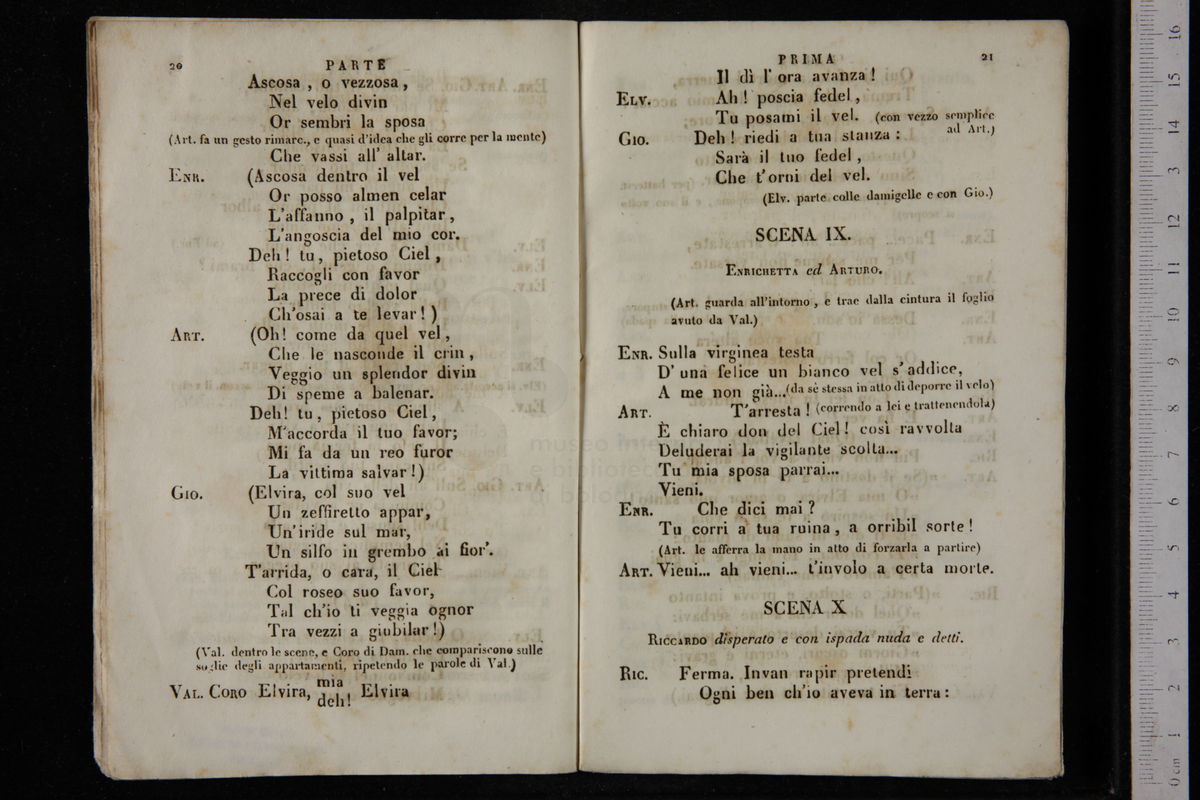 20 PARTE
Ascosa , o vezzosa ,
Nel velo divin
Or sembri la sposa
(Art. fa un gesto rimarc., e quasi d'idea che gli corre per la mente)
Che vassi all' altar.
ENR. (Ascosa dentro il vel
Or posso almen celar
L'affanno , il palpitar ,
L'angoscia del mio cor.
Deh ! tu , pietoso Ciel ,
Raccogli con favor
La prece di dolor
Ch'osai a te levar ! )
ART. (Oh! come da quel vel ,
Che le nasconde il crin ,
Veggio un splendor divin
Di speme a balenar.
Deh! tu , pietoso Ciel ,
M'accorda il tuo favor;
Mi fa da un reo furor
La vittima salvar !)
GIO. (Elvira, col suo vel
Un zeffiretto appar,
Un'iride sul mar,
Un silfo in grembo ai fior'.
T'arrida, o cara, il Ciel
Col roseo suo favor,
Tal ch'io ti veggia ognor
Tra vezzi a giubilar !)
(Val. dentro le scene, e Coro di Dam. che compariscono sulle
soglie degli appartamenti, ripetendo le parole di Val.)
VAL. CORO Elvira, mia deh! , Elvira
PRIMA 21
Il dì l' ora avanza !
ELV. Ah ! poscia fedel ,
Tu posami il vel. (con vezzo semplice
ad Art.)
GIO. Deh ! riedi a tua stanza :
Sarà il tuo fedel ,
Che t'orni del vel.
(Elv. parte colle damigelle e con Gio.)
SCENA IX.
ENRICHETTA ed ARTURO.
(Art. guarda all'intorno , e trae dalla cintura il foglio
avuto da Val.)
ENR. Sulla virginea testa
D' una felice un bianco vel s' addice,
A me non già...(da sè stessa in atto di deporre il velo)
ART. T'arresta ! (correndo a lei e trattenendola)
È chiaro don del Ciel ! così ravvolta
Deluderai la vigilante scolta...
Tu mia sposa parrai...
Vieni.
ENR. Che dici mai ?
Tu corri a tua ruina , a orribil sorte !
(Art. le afferra la mano in atto di forzarla a partire)
ART. Vieni... ah vieni... t'involo a certa morte.
SCENA X
RICCARDO disperato e con ispada nuda e detti.
RIC. Ferma. Invan rapir pretendi
Ogni ben ch'io aveva in terra :